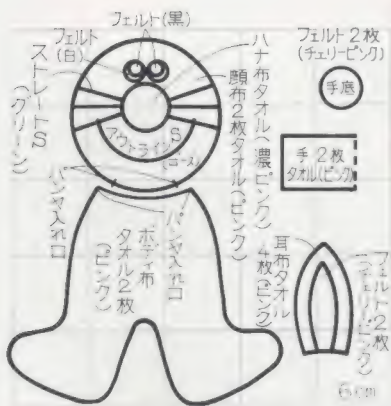 フェルト(黒)
フェルト
(白)
ストレートS
(グリーン)
ハナ布タオル(濃ピンク)
顔布2枚タオル(ピンク)
アウトラインS
(ローズ)
パンヤ入れ口
パンヤ入れ口
ボディ布
タオル2枚
(ピンク)
フェルト2枚
(チェリーピンク)
手底
手2枚
タオル(ピンク)
耳布タオル
4枚(ピンク)
フェルト2枚
(チェリーピンク)
6cm